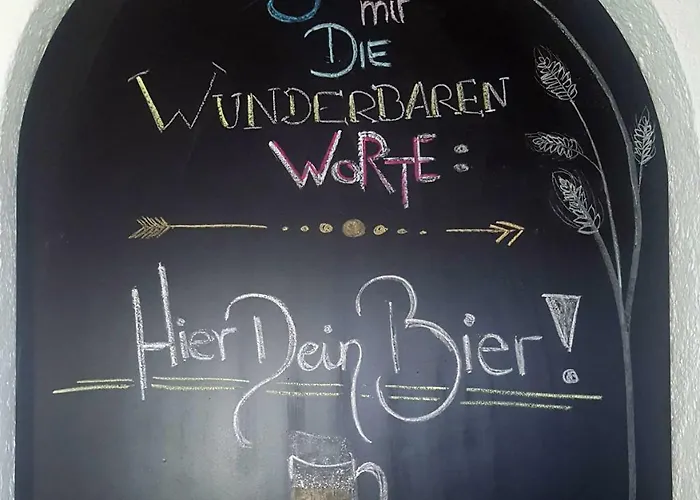 mir
DIE
WUNDERBAREN
WORTE:
Hier Dein Bier!